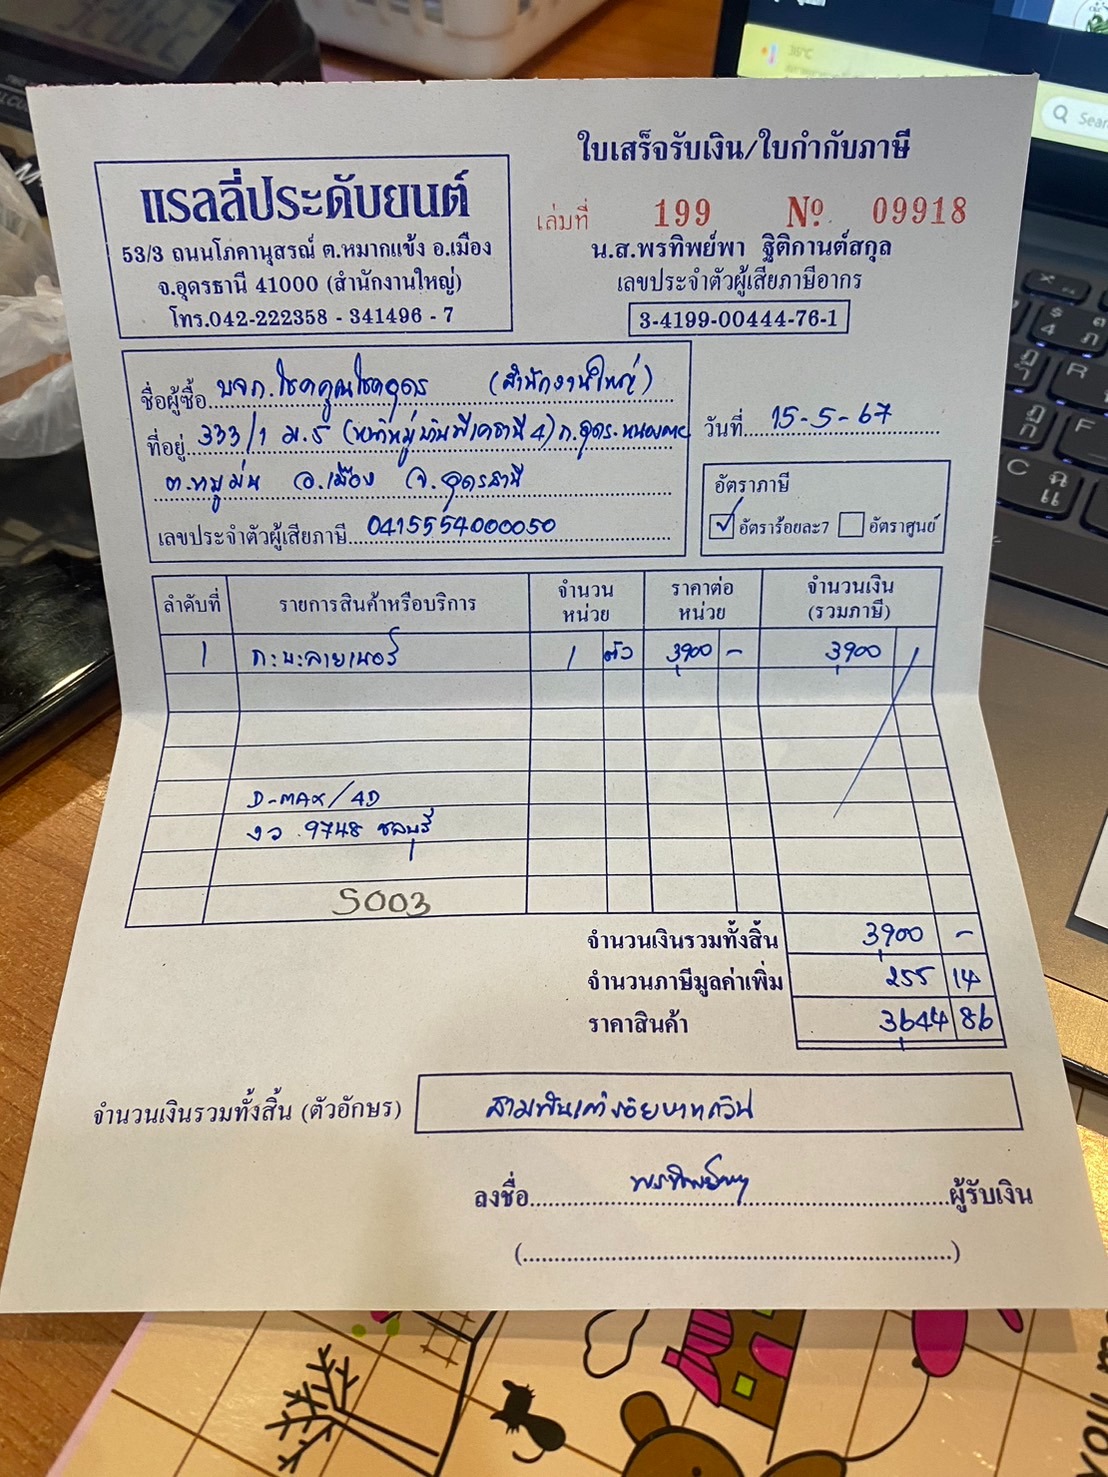 ใบเสร็จรับเงิน/ใบกำกับภาษี
แรลลี่ประดับยนต์
53/3 ถนนโภคานุสรณ์ ต.หมากแข้ง อ.เมือง
จ.อุดรธานี 41000 (สำนักงานใหญ่)
โทร.042-222358 - 341496 - 7
เล่มที่ 199 Nº 09918
น.ส.พรทิพย์พา ฐิติกานต์สกุล
เลขประจำตัวผู้เสียภาษีอากร
3-4199-00444-76-1
ชื่อผู้ซื้อ บจก.โชคคูณโชคอุดร (สำนักงานใหญ่)
ที่อยู่ 333/1 ม.5 ถ.อุดร-หนองคาย
ต.หมูม่น อ.เมือง จ.อุดรธานี
เลขประจำตัวผู้เสียภาษี 0415554000050
วันที่ 15-5-67
อัตราภาษี
✓ อัตราร้อยละ7 อัตราศูนย์
ลำดับที่ รายการสินค้าหรือบริการ จำนวนหน่วย ราคาต่อหน่วย จำนวนเงิน (รวมภาษี)
1 กะบะลายเนอร์ 1 ตัว 3,900 - 3,900
D-MAX/4D
งว 9748 ชลบุรี
S003
จำนวนเงินรวมทั้งสิ้น 3,900 -
จำนวนภาษีมูลค่าเพิ่ม 255 14
ราคาสินค้า 3,644 86
จำนวนเงินรวมทั้งสิ้น (ตัวอักษร) สามพันเก้าร้อยบาทถ้วน
ลงชื่อ พรทิพย์พา ผู้รับเงิน
36°C